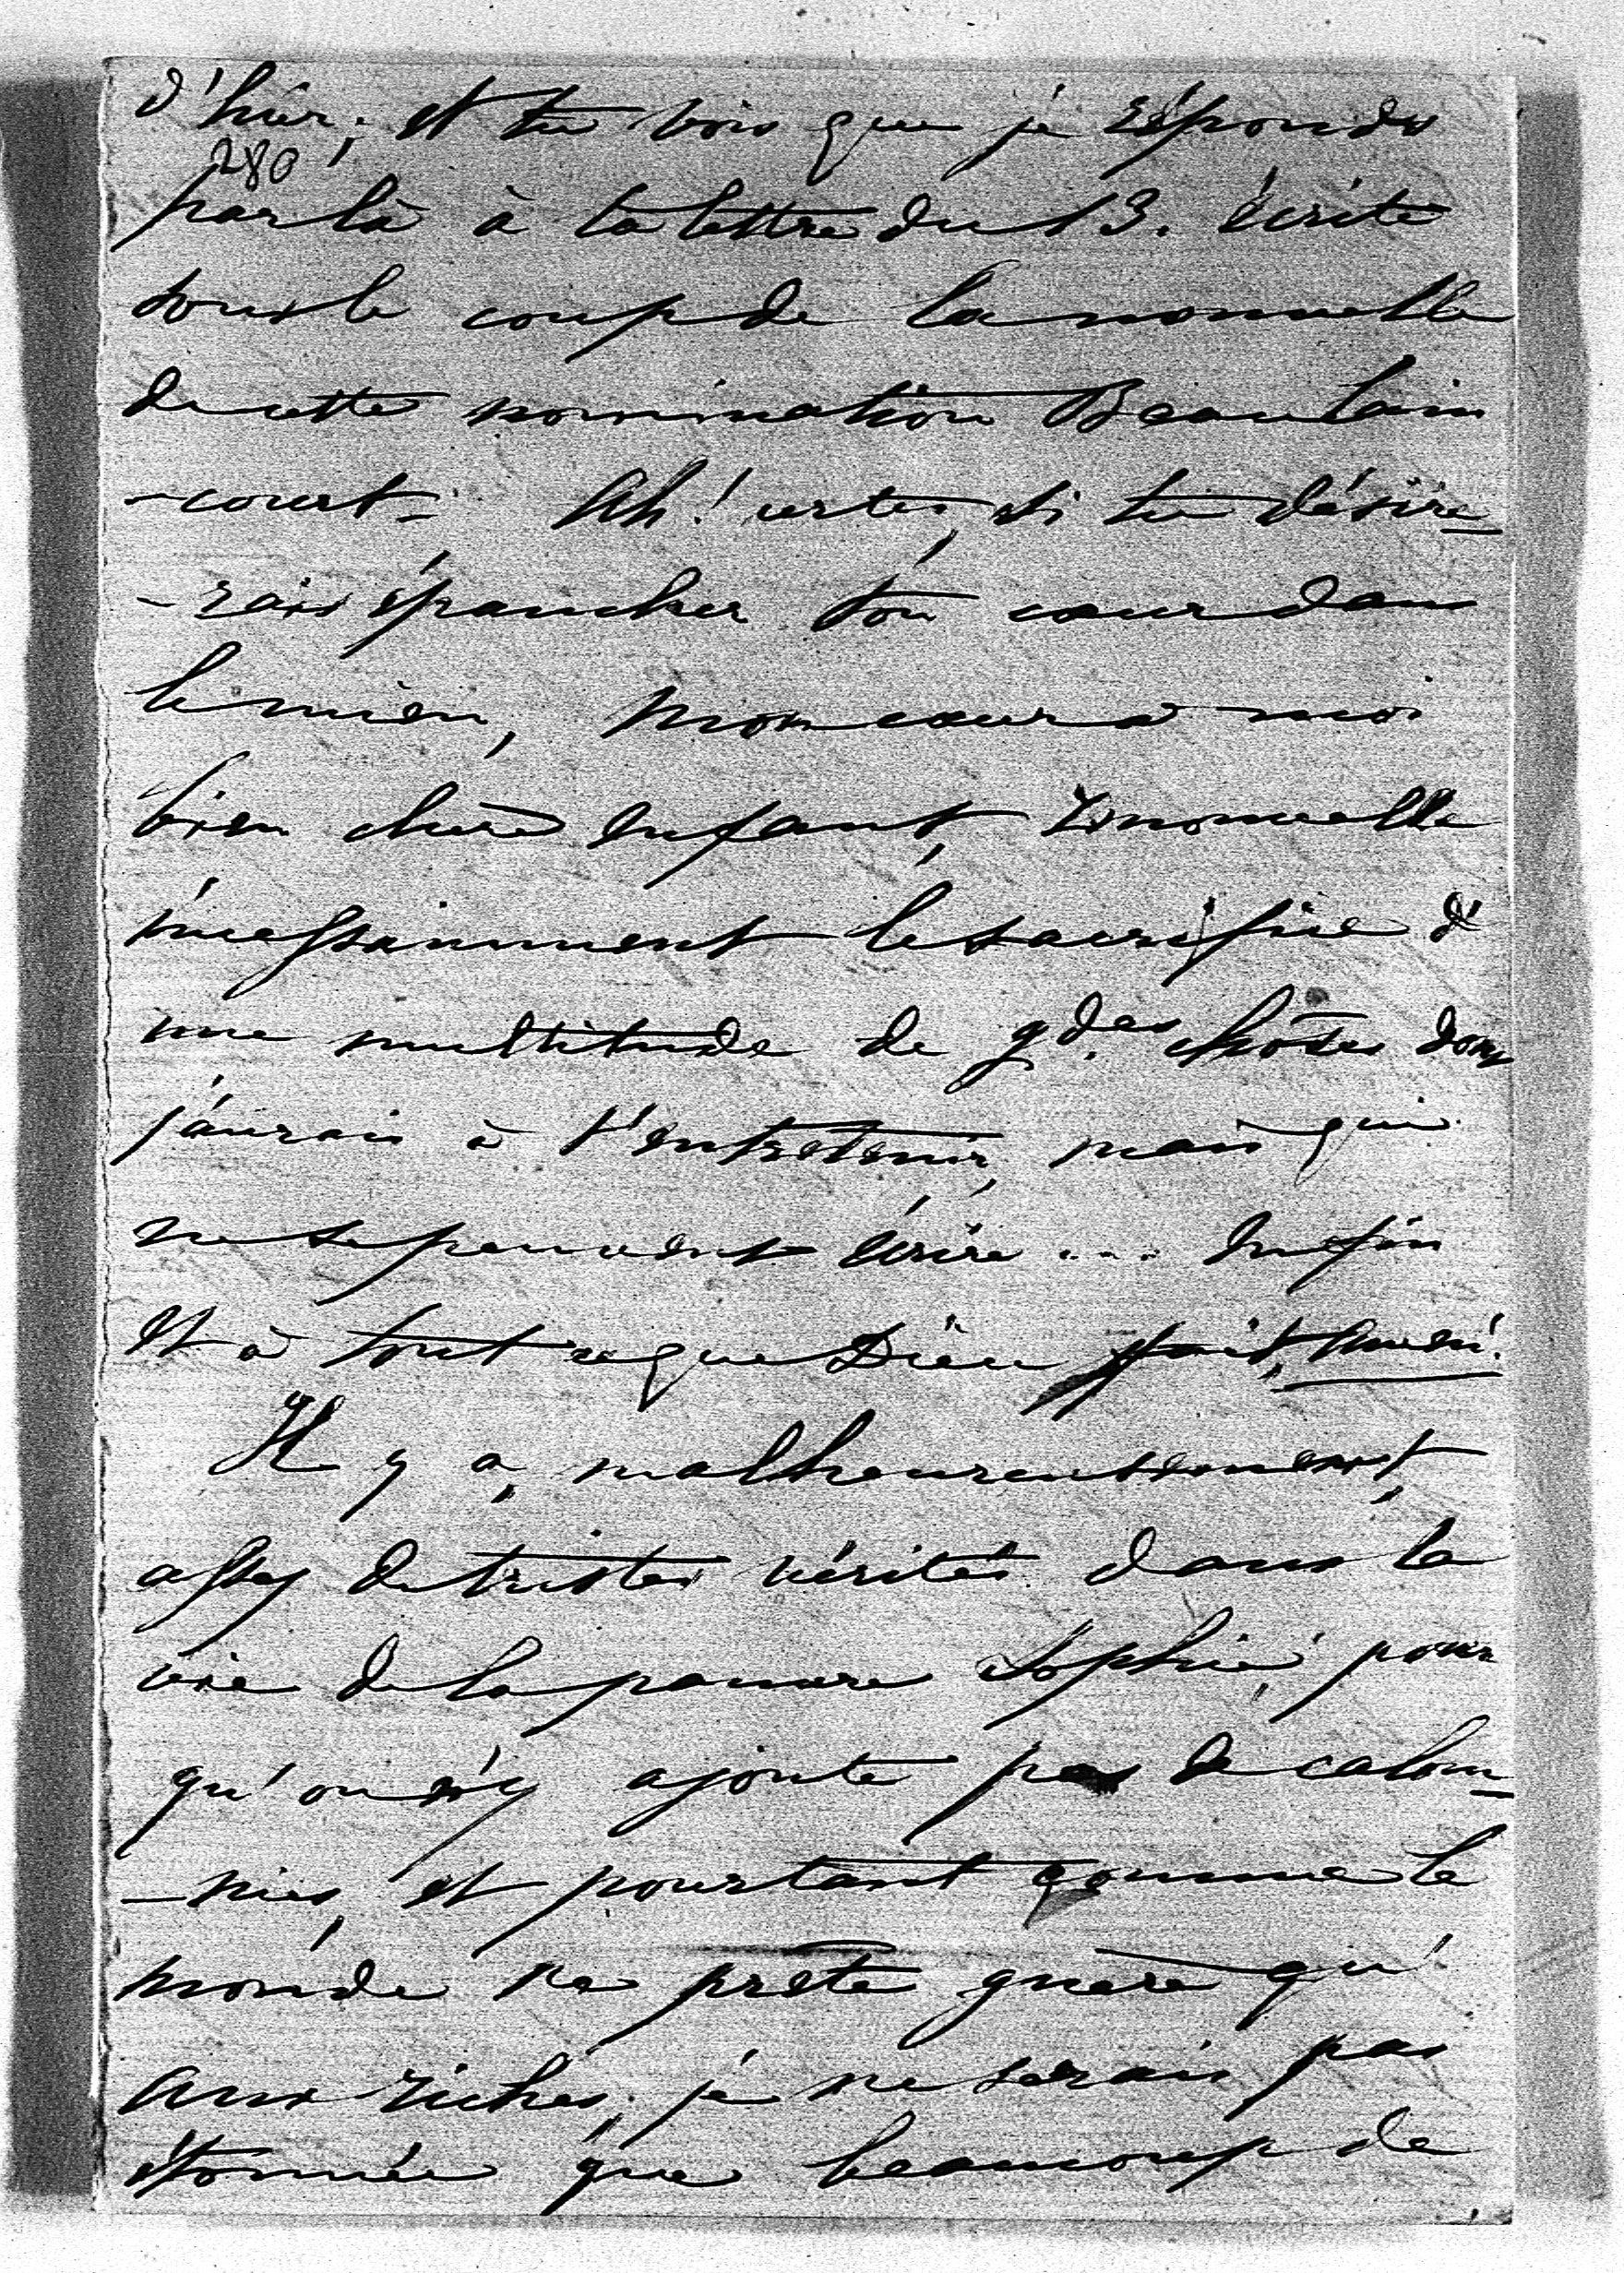 d'hier; et tu vois que je réponds
280
par là à ta lettre du 13. écrite
sous le coup de la nouvelle
de cette nomination Beaulain
-court. Ah! certes, si tu désire-
-rais épancher ton cœur dans
le mien, mon cœur à moi
bien chère enfant renouvelle
incessamment le sacrifice d'
une multitude de gdes choses dont
j'aurais à t'entretenir, mais qui
ne se peuvent écrire .... Enfin
et à tout ce que Dieu fait, Amen!
Il y a, malheureusement,
assez de tristes vérités dans la
vie de la pauvre Sophie, pour
qu'on n'y ajoute pas de calom-
-nies, et pourtant comme le
monde ne prête guère qu'
aux riches, je ne serais pas
étonnée que beaucoup de